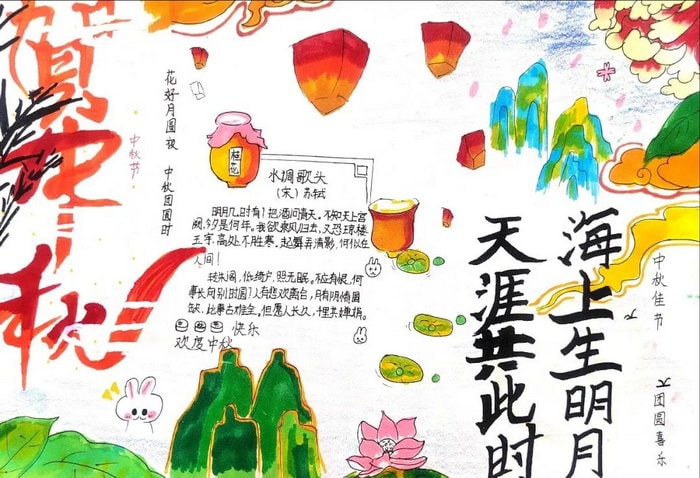 贺中秋
中秋节
花好月圆夜 中秋团圆时
桂花
水调歌头
(宋)苏轼
明月几时有?把酒问青天。不知天上宫
阙,今夕是何年。我欲乘风归去,又恐琼楼
玉宇,高处不胜寒,起舞弄清影,何似在
人间!
转朱阁,低绮户,照无眠。不应有恨,何
事长向别时圆?人有悲欢离合,月有阴晴圆
缺,此事古难全。但愿人长久,千里共婵娟。
快乐
欢度中秋
海上生明月
天涯共此时
中秋佳节
团圆喜乐